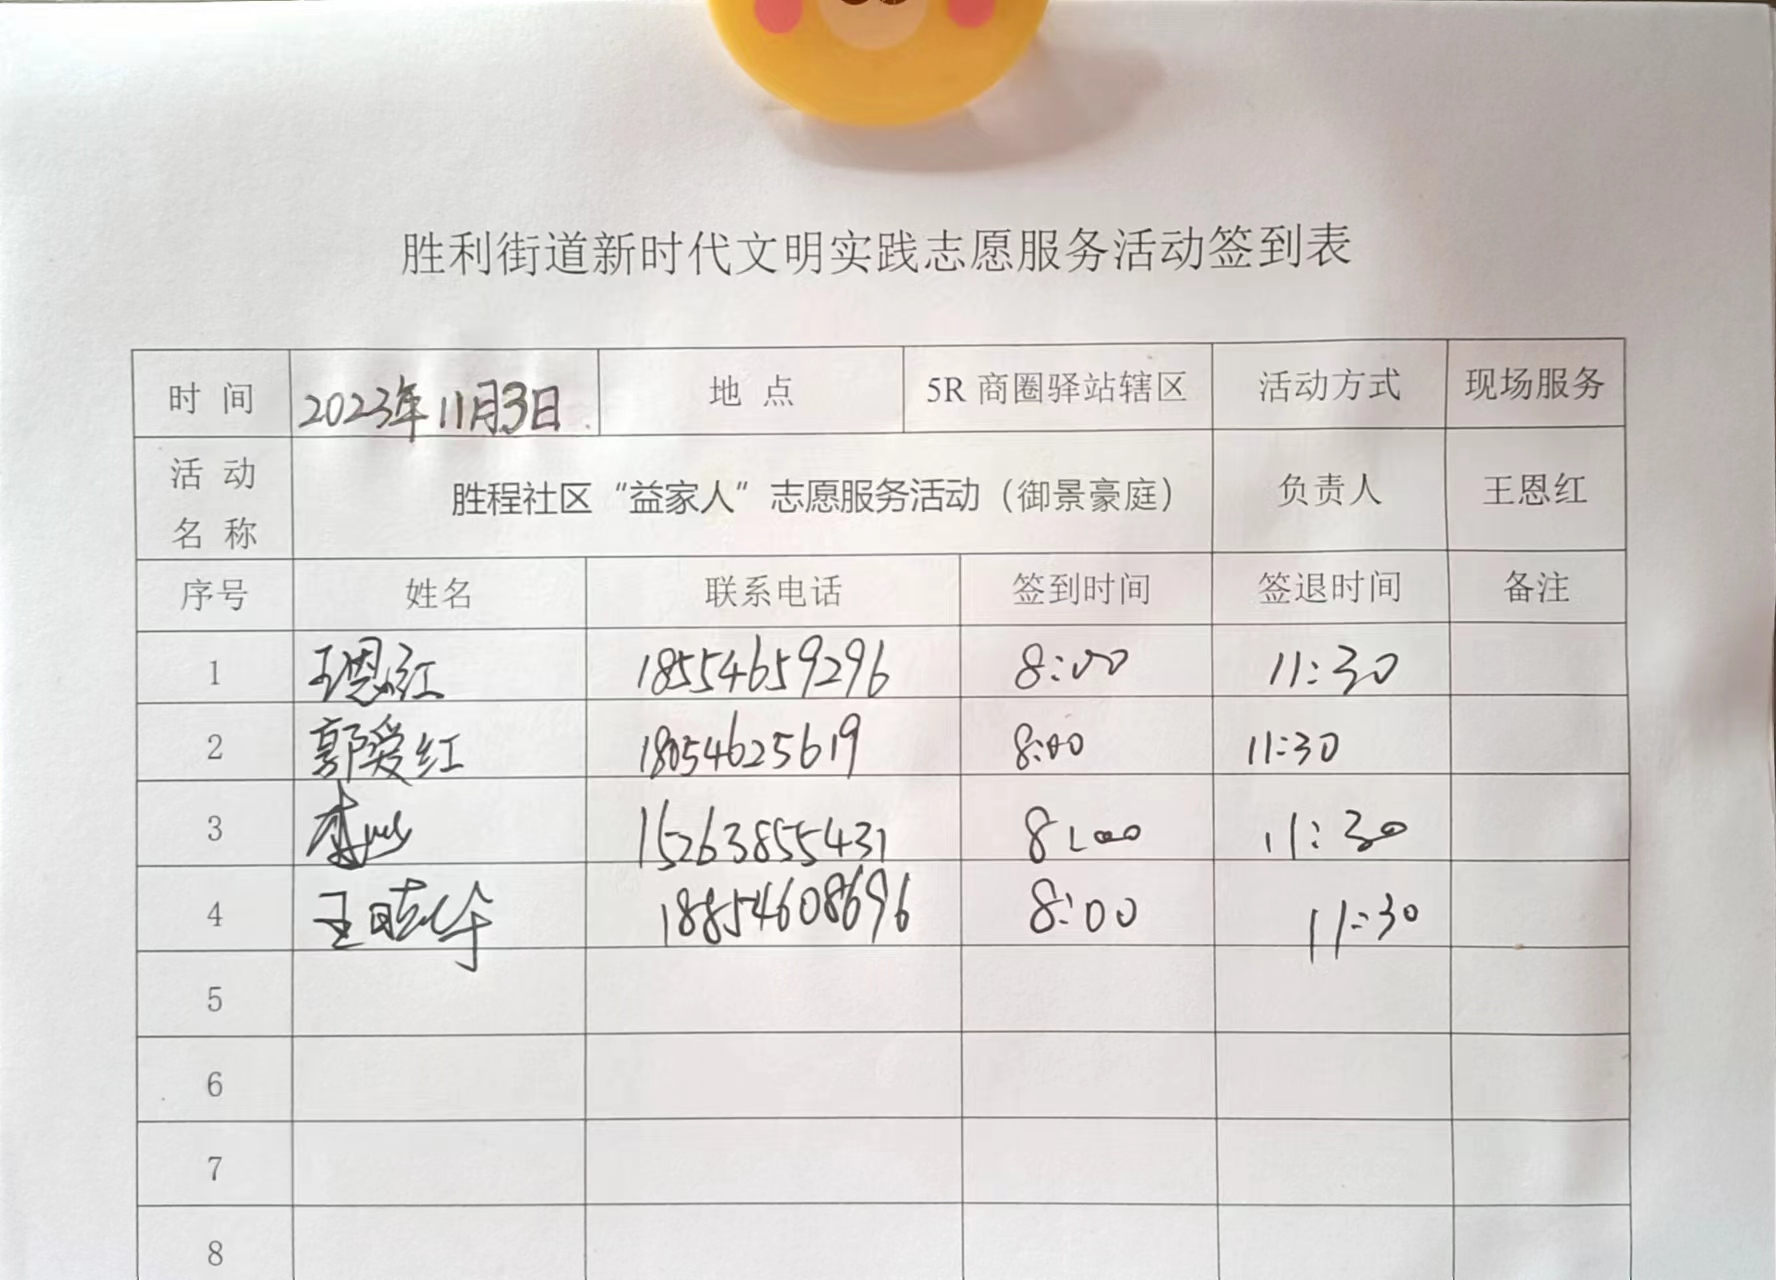 胜利街道新时代文明实践志愿服务活动签到表
时 间 2023年11月3日 地 点 5R 商圈驿站辖区 活动方式 现场服务
活 动
名 称 胜程社区“益家人”志愿服务活动（御景豪庭） 负责人 王恩红
序号 姓名 联系电话 签到时间 签退时间 备注
1 王恩红 18554659296 8:00 11:30
2 郭爱红 18054625619 8:00 11:30
3 李 15263855431 8:00 11:30
4 王晓华 18854608696 8:00 11:30
5
6
7
8